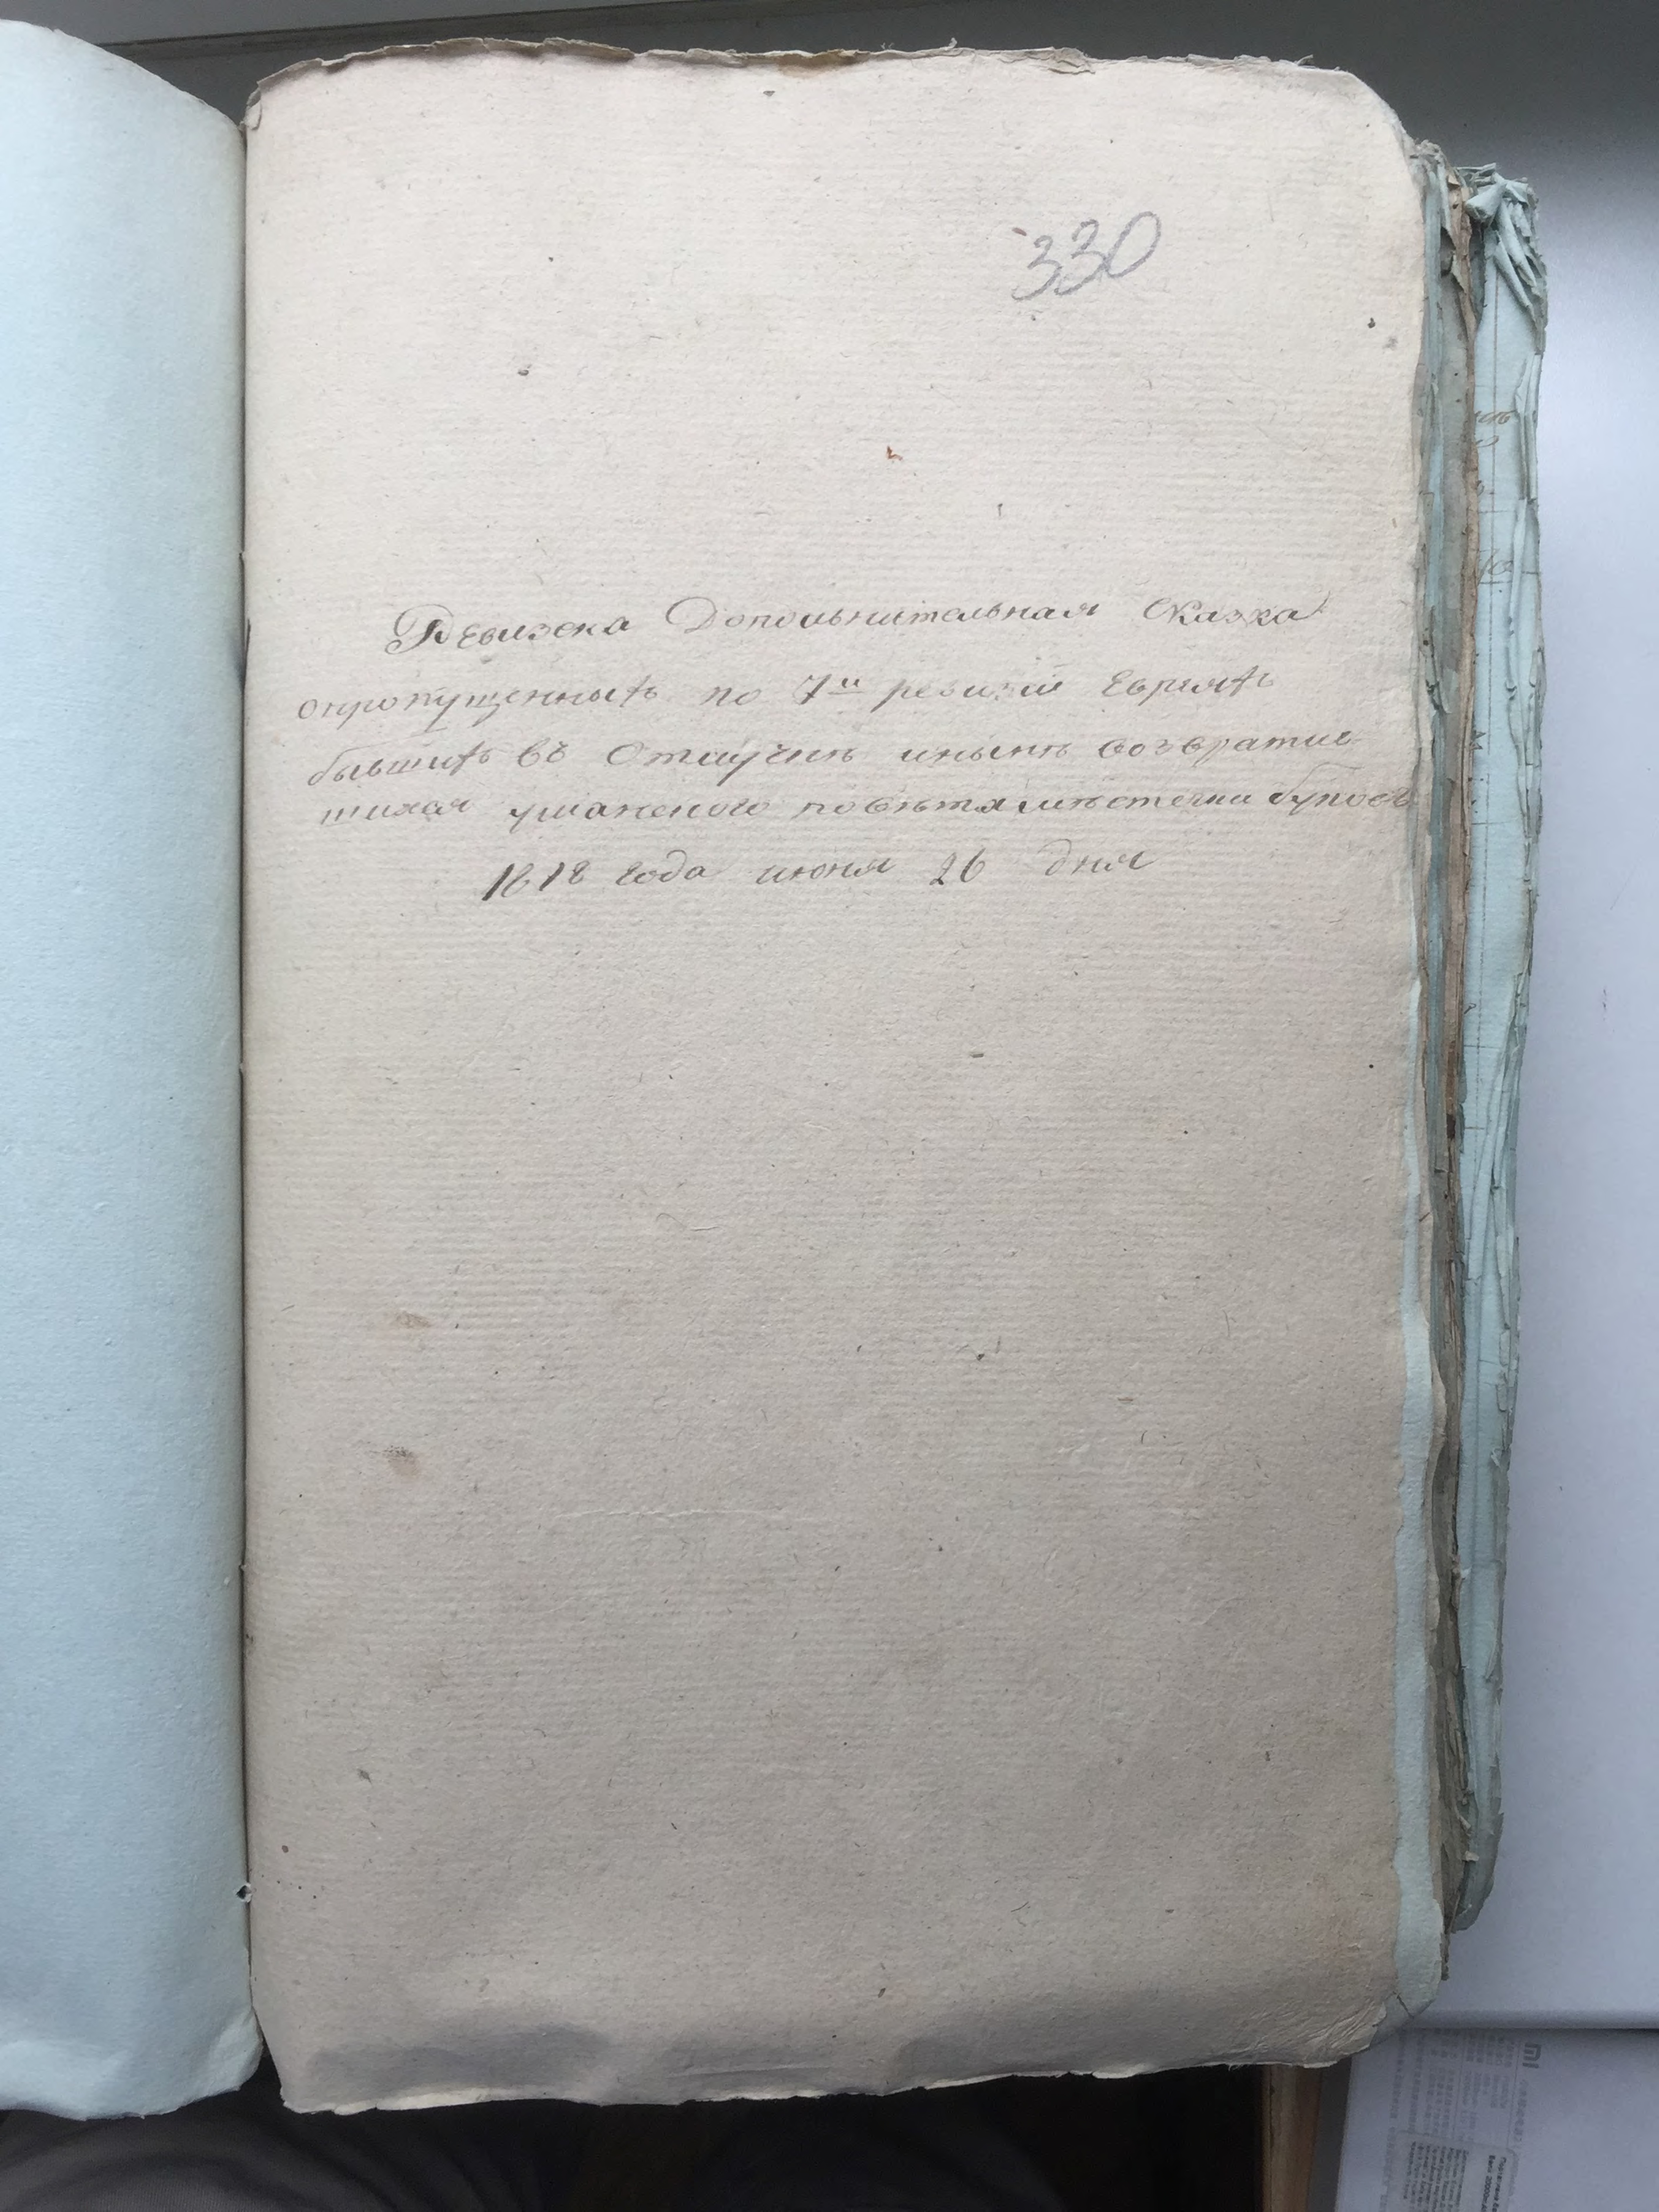 330
Ревизска Допольнительная Сказка
опропущенныхъ по 7й ревизіи Евреяхъ
бывшихъ въ Отлучке инынѣ возвратив
шихся уманского повѣта мѣстечки буковъ
1818 года июня 26 дня